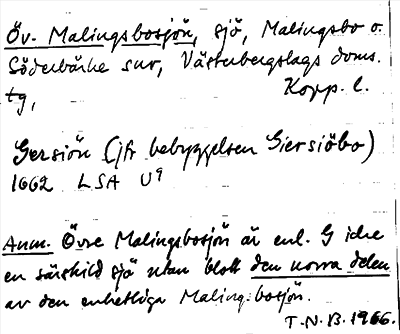 Öv. Malingsbosjön, sjö, Malingsbo o.
Söderbärke snr, Västerbergslags doms.
tg, Kopp. l.
Gersiön (jfr bebyggelsen Giersiöbo)
1662 LSA U9
Anm. Övre Malingsbosjön är enl. G icke
en särskild sjö utan blott den norra delen
av den enhetliga Malingsbosjön.
T.N.B. 1966.